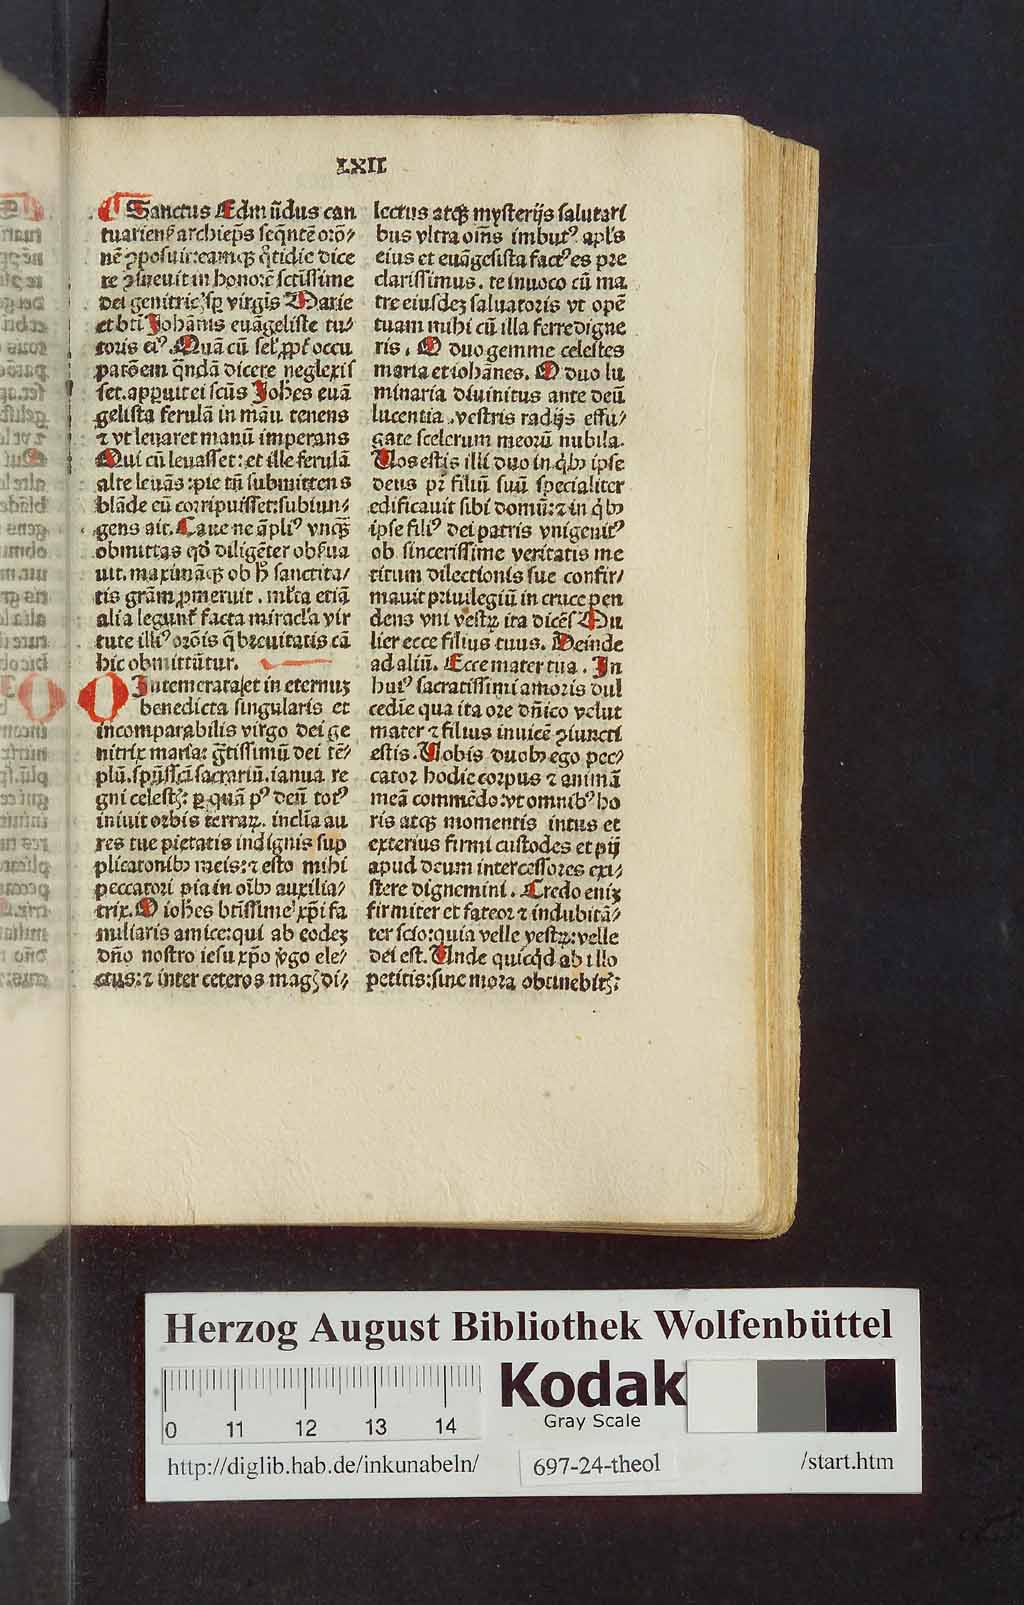 LXII
Sanctus Edmūdus can
tuarienꝰ archiep̄s seq̄ntē orō⸗
nē ꝓposuit: eamqꝫ q̄tidie dice
re ꝯsueuit in honorē sctīssime
dei genitricꝭ sꝑ virgīs Marie
et bti Johānis euāgeliste tu⸗
toris eiꝰ. Quā cū sel' ꝓpt' occu
patōem q̄ndā dicere neglexis
set. apꝑuit ei scūs Joħes euā
gelista ferulā in māu tenens
⁊ vt leuaret manū imperans
Qui cū leuasset: et ille ferulā
alte leuās: pie tn̄ submittens
blāde eū corripuisset: subiun⸗
gens ait. Caue ne āpliꝰ vnqꝫ
obmittas qđ diligēter obs̄ua
uit. maximāqꝫ ob ħ sanctita⸗
tis grām ꝓmeruit. ml'ta etiā
alia legunt̄ facta miracl'a vir
tute illiꝰ orōis q̄ breuitatis cā
hic obmittūtur.
O Intemerata et in eternuꝫ
benedicta singularis et
incomparabilis virgo dei ge
nitrix maria: g̃tissimū dei tē⸗
plū. sp̄ūssc̄i sacrariū. ianua re
gni celestꝭ: ꝑ quā pꝰ deū totꝰ
iniuit orbis terraꝝ. inclia au
res tue pietatis indignis sup
plicatonibꝫ meis: ⁊ esto mihi
peccatori pia in oībꝫ auxilia⸗
trix. O ioħes btīssime xp̄i fa
miliaris amice: qui ab eodeꝫ
dn̄o nostro iesu xp̄o ṽgo ele⸗
ctus: ⁊ inter ceteros magꝭ di⸗
lectus atqꝫ mysterijs salutari
bus vltra om̄s imbutꝰ apl's
eius et euāgelista factꝰ es pre
clarissimus. te inuoco cū ma
tre eiusdeꝫ saluatoris vt opē
tuam mihi cū illa ferre digne
ris. O duo gemme celestes
maria et iohānes. O duo lu
minaria diuinitus ante deū
lucentia. vestris radijs effu⸗
gate scelerum meorū nubila.
Uos estis illi duo in q̄bꝫ ipse
deus pr̄ filiū suū specialiter
edificauit sibi domū: ⁊ in q̄bꝫ
ipse filiꝰ dei patris vnigenitꝰ
ob sincerissime veritatis me
titum dilectionis sue confir⸗
mauit priuilegiū in cruce pen
dens vni vestꝝ ita dicēs Mu
lier ecce filius tuus. Deinde
ad aliū. Ecce mater tua. In
huiꝰ sacratissimi amoris dul
cedīe qua ita ore dn̄ico velut
mater ⁊ filius inuicē ꝯiuncti
estis. Uobis duobꝫ ego pec⸗
cator hodie corpus ⁊ animā
meā commēdo: vt omnibꝰ ho
ris atqꝫ momentis intus et
exterius firmi custodes et pij
apud deum intercessores exi⸗
stere dignemini. Credo eniꝫ
firmiter et fateor ⁊ indubitā⸗
ter scio: quia velle vestꝝ: velle
dei est. Unde quicq̄d ab illo
petitis: sine mora obtinebitꝭ:
Herzog August Bibliothek Wolfenbüttel
Kodak
Gray Scale
0 11 12 13 14
http://diglib.hab.de/inkunabeln/ 697-24-theol /start.htm